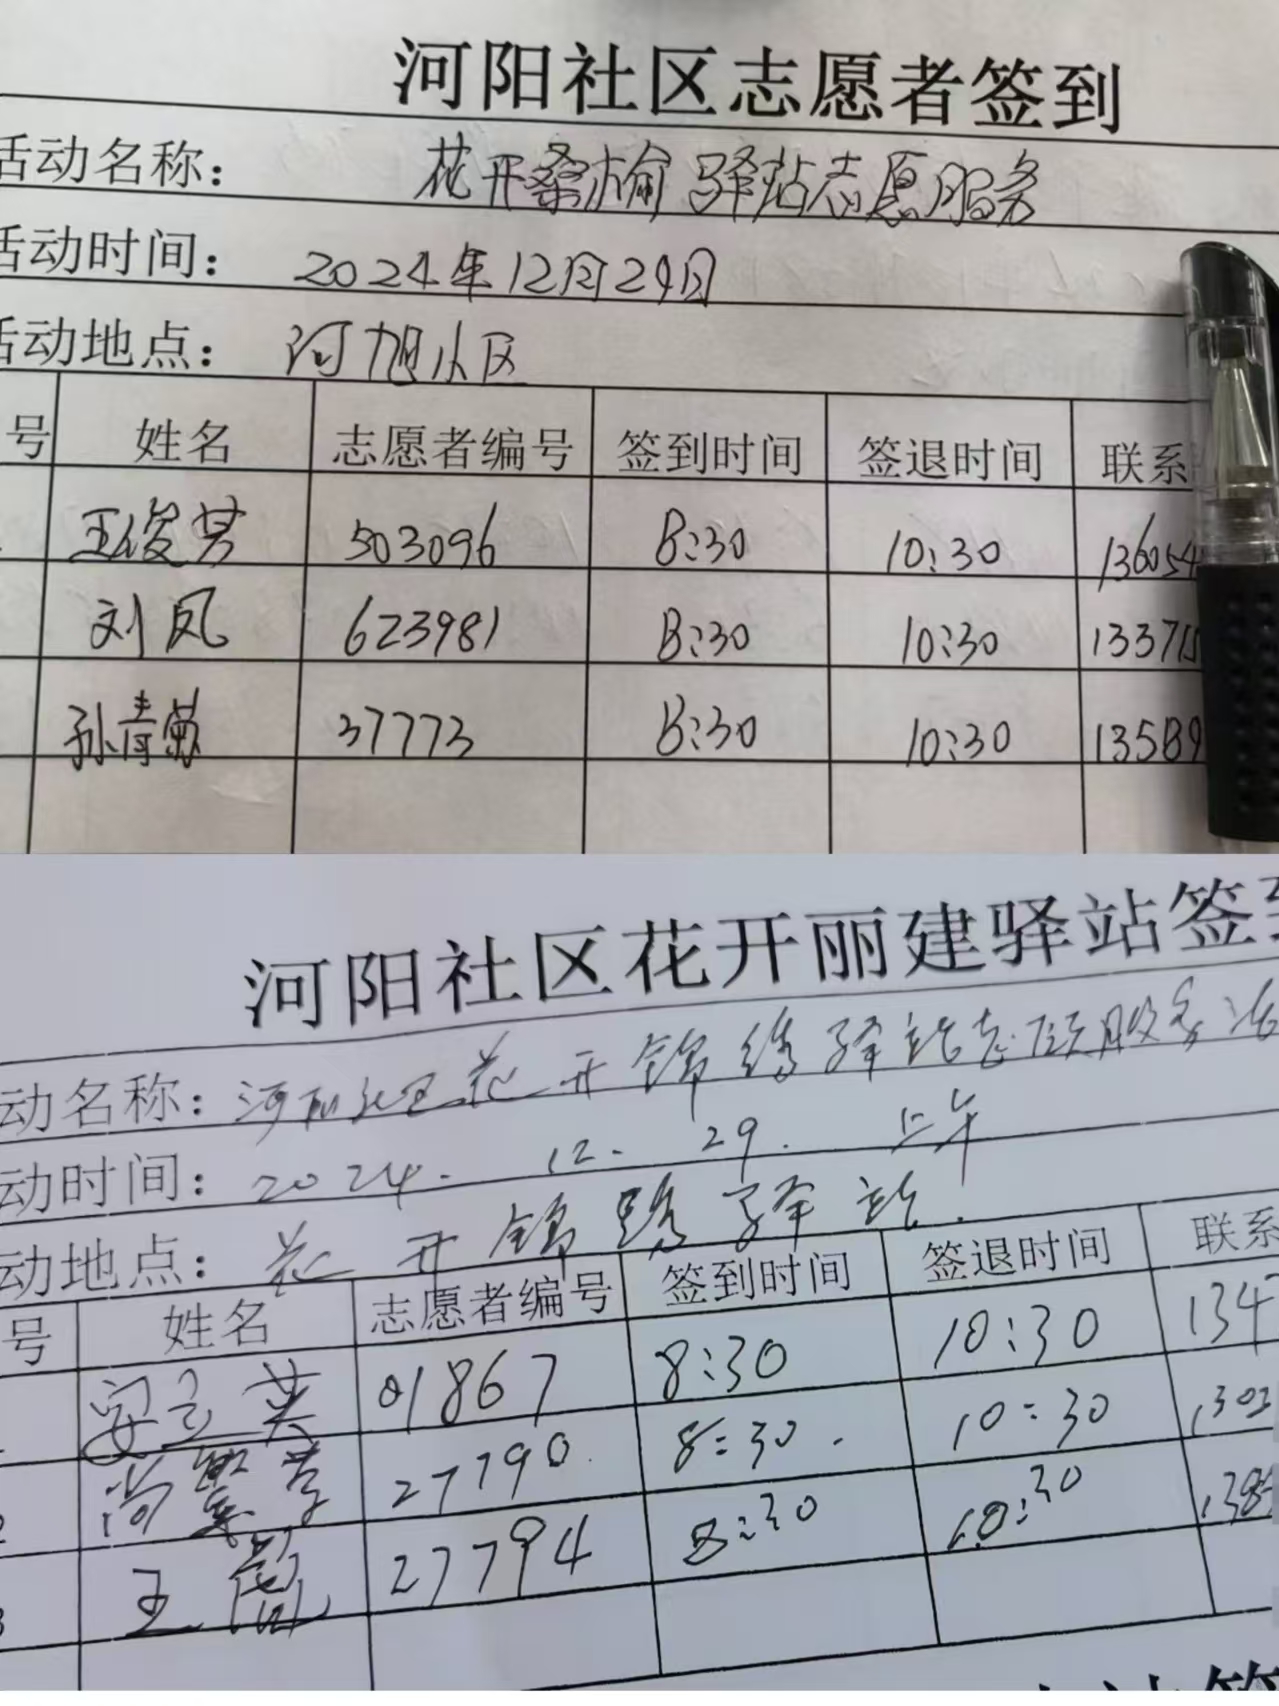 河阳社区志愿者签到
活动名称： 花开桑榆驿站志愿服务
活动时间： 2024年12月29日
活动地点： 河旭小区
号 姓名 志愿者编号 签到时间 签退时间 联系
王俊芳 503096 8:30 10:30 136054
刘凤 623981 8:30 10:30 13371
孙青菊 37773 8:30 10:30 13589
河阳社区花开丽建驿站签到
动名称： 河阳社区花开锦绣驿站志愿服务活
动时间： 2024. 12. 29. 上午
动地点： 花开锦绣驿站.
号 姓名 志愿者编号 签到时间 签退时间 联系
安立英 01867 8:30 10:30 134
尚 27790 8:30 10:30 1303
3 王 27794 8:30 10:30 138